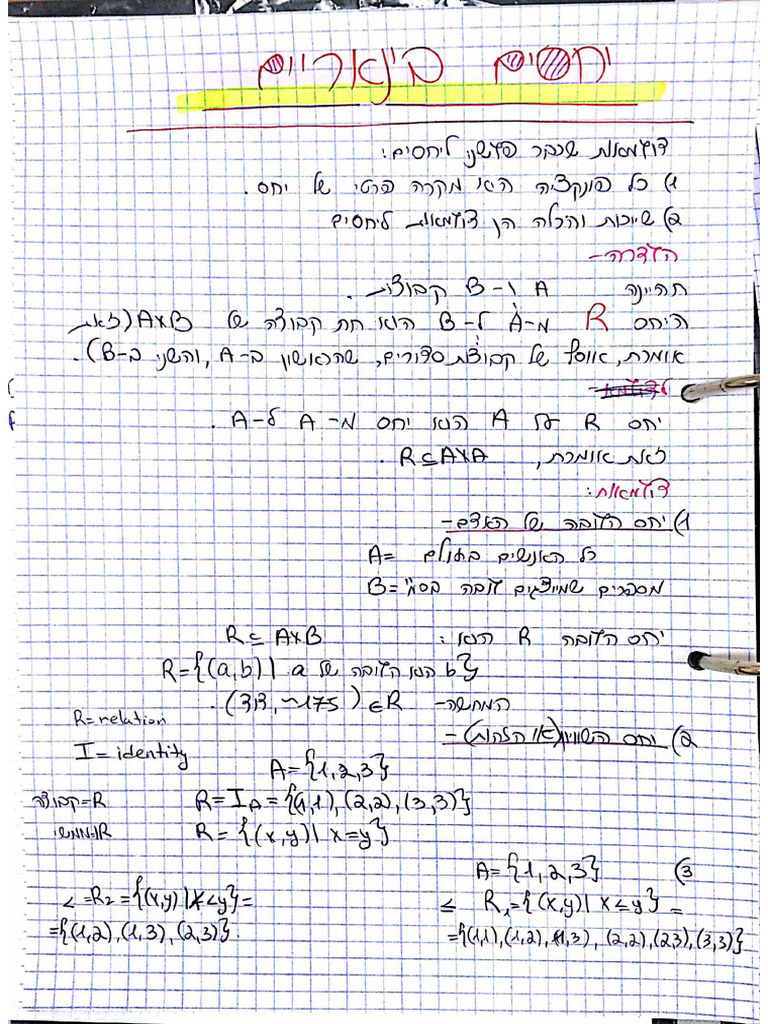 יחסים בינאריים
דוגמאות שכבר פגשנו ליחסים:
1) כל פונקציה היא מקרה פרטי של יחס.
2) שייכות והכלה הן דוגמאות ליחסים
הגדרה-
תהיינה A ו-B קבוצות.
היחס R מ-A ל-B הוא תת קבוצה של AxB (זאת
אומרת, אוסף של קבוצות סדורים, שהראשון ב-A, והשני ב-B).
יחס R על A הוא יחס מ-A ל-A.
זאת אומרת, R⊆AxA.
דוגמאות:
1) יחס הגובה של האדם-
A= כל האנשים בעולם
B= מספרים שמייצגים גובה בסמ"
יחס הגובה R הוא: R⊆AxB
R={(a,b)| a הוא הגובה של b}
המחשה- (דוד, ~175)∈R.
R=relation
2) יחס השוויון (או הזהות)-
I=identity
A={1,2,3}
R=קבוצה
R=I_A={(1,1),(2,2),(3,3)}
R=ממשי
R={(x,y)| x=y}
3) A={1,2,3}
≤ R₁={(x,y)| x≤y}=
={(1,1),(1,2),(1,3),(2,2),(2,3),(3,3)}
< =R₂={(x,y)|x<y}=
={(1,2),(1,3),(2,3)}.